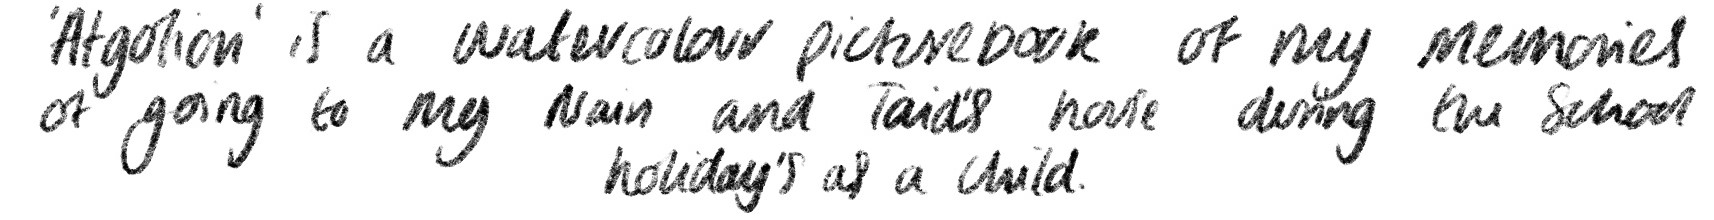 'Atgofion' is a watercolour picturebook of my memories
of going to my Nain and Taid's house during the School
holiday's as a child.